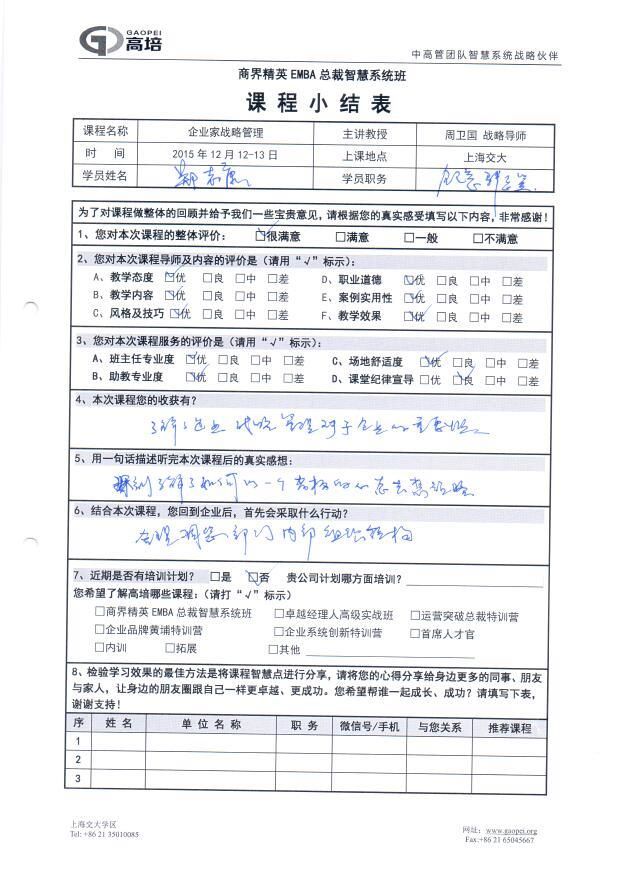 GAOPEI
高培
中高管团队智慧系统战略伙伴
商界精英 EMBA 总裁智慧系统班
课程小结表
课程名称 企业家战略管理 主讲教授 周卫国 战略导师
时 间 2015 年 12 月 12-13 日 上课地点 上海交大
学员姓名 学员职务
为了对课程做整体的回顾并给予我们一些宝贵意见，请根据您的真实感受填写以下内容，非常感谢！
1、您对本次课程的整体评价： ☑很满意 □满意 □一般 □不满意
2、您对本次课程导师及内容的评价是（请用“√”标示）：
A、教学态度 ☑优 □良 □中 □差 D、职业道德 ☑优 □良 □中 □差
B、教学内容 ☑优 □良 □中 □差 E、案例实用性 ☑优 □良 □中 □差
C、风格及技巧 ☑优 □良 □中 □差 F、教学效果 ☑优 □良 □中 □差
3、您对本次课程服务的评价是（请用“√”标示）：
A、班主任专业度 ☑优 □良 □中 □差 C、场地舒适度 ☑优 □良 □中 □差
B、助教专业度 ☑优 □良 □中 □差 D、课堂纪律宣导 □优 ☑良 □中 □差
4、本次课程您的收获有？
了解了企业战略管理对于企业的重要性。
5、用一句话描述听完本次课程后的真实感想：
深刻了解了如何以一个老板的心态去想战略
6、结合本次课程，您回到企业后，首先会采取什么行动？
合理调整部门内部组织结构
7、近期是否有培训计划？ □是 ☑否 贵公司计划哪方面培训？
您希望了解高培哪些课程：（请打“√”标示）
□商界精英 EMBA 总裁智慧系统班 □卓越经理人高级实战班 □运营突破总裁特训营
□企业品牌黄埔特训营 □企业系统创新特训营 □首席人才官
□内训 □拓展 □其他
8、检验学习效果的最佳方法是将课程智慧点进行分享，请将您的心得分享给身边更多的同事、朋友
与家人，让身边的朋友圈跟自己一样更卓越、更成功。您希望帮谁一起成长、成功？请填写下表，
谢谢支持！
序 姓 名 单 位 名 称 职 务 微信号/手机 与您关系 推荐课程
1
2
3
上海交大学区
Tel: +86 21 35010085
网址：www.gaopei.org
Fax:+86 21 65045667